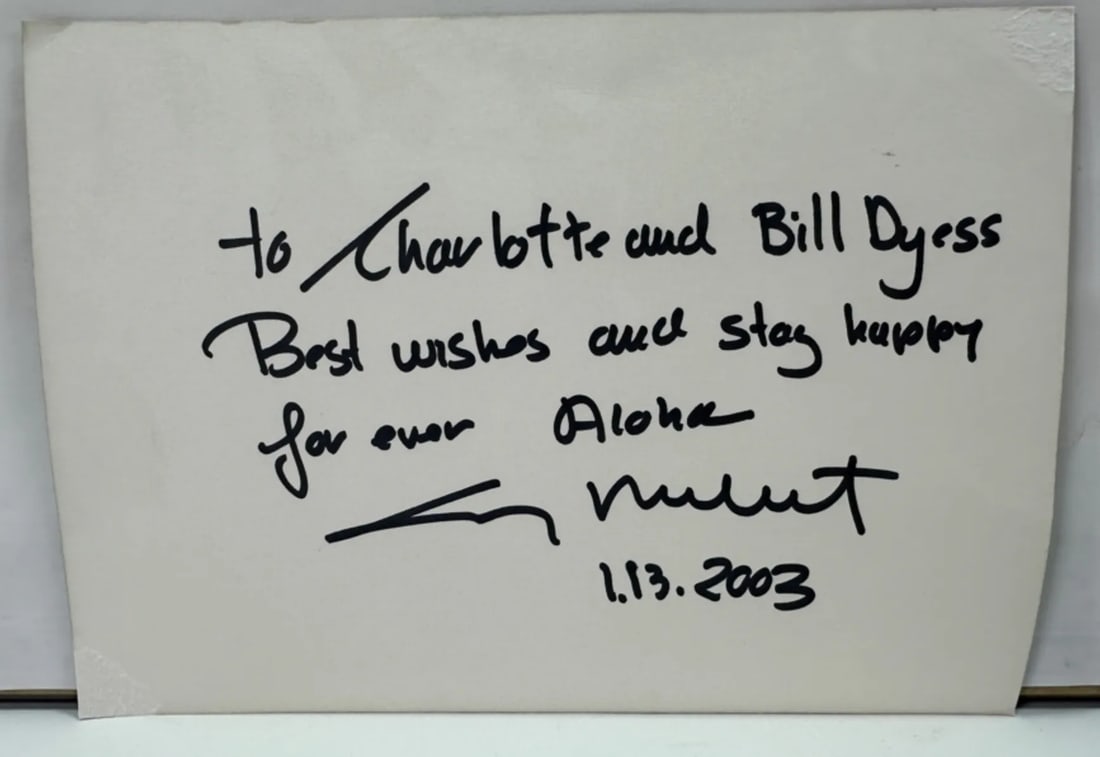 to Charlotte and Bill Dyess
Best wishes and stay happy
for ever Aloha
1.13.2003